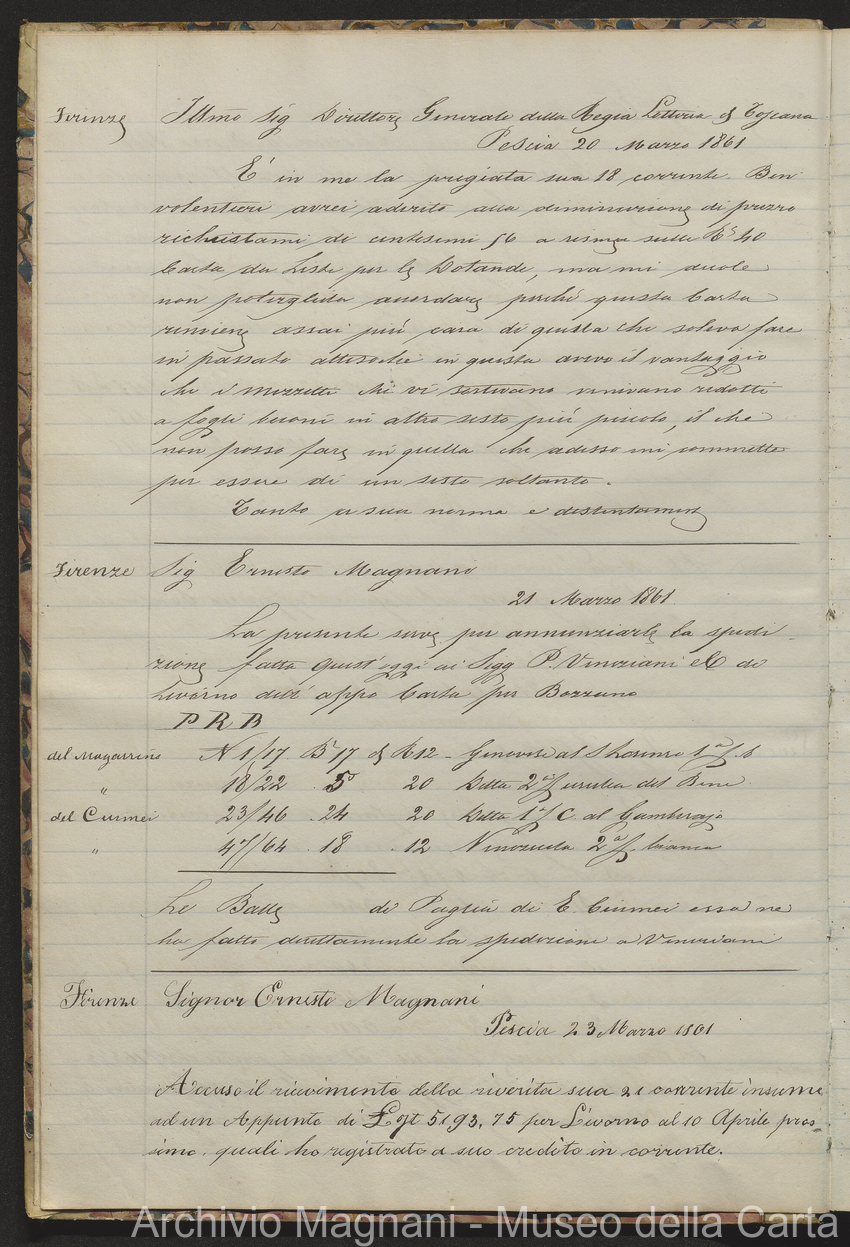 Firenze Illmo Sig Direttore Generale della Regia Lotteria di Toscana
Pescia 20 Marzo 1861
E' in me la pregiata sua 18 corrente. Ben
volentieri avrei aderito alla diminuzione di prezzo
richiestami di centesimi 56 a risma sulle Re 40
Carta da Liste per le Dotande, ma mi duole
non potergliela accordare perché questa Carta
rinviene assai più cara di quella che solevo fare
in passato attesoché in questa avevo il vantaggio
che i mezzetti che vi sortivano venivano ridotti
a fogli buoni in altro sesto più piccolo, il che
non posso fare in quella che adesso mi commette
per essere di un sesto soltanto.
Tanto a sua norma e distintamente
Firenze Sig Ernesto Magnani
21 Marzo 1861
La presente serve per annunziarle la spedi-
zione fatta quest'oggi ai Sigg P. Veneziani e C di
Livorno dell' appo Carta per Bozzano
P R B
del Magazzino N 1/17 Be 17 di R 12 - Genovese al 1a
" 18/22 . 5 20 Detta 2a del Bene
del Ciumei 23/46 . 24 20 Detta 1a C. al Gamberajo
" 47/64 . 18 . 12 2a bianca
Le Balle di Paglia di E. Ciumei essa ne
ha fatto direttamente la spedizione a Veneziani
Firenze Signor Ernesto Magnani
Pescia 23 Marzo 1861
Accuso il ricevimento della riverita sua 21 corrente insieme
ad un Appunto di 5193,75 per Livorno al 10 Aprile pros-
simo. quali ho registrato a suo credito in corrente.
Archivio Magnani - Museo della Carta